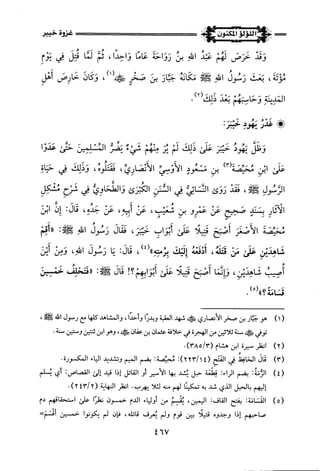 اللؤلؤ المكنون
غزوة خيبر
وَقَدْ خَرَصَ لَهُمْ عَبْدُ اللهِ بنُ رَوَاحَةَ عَامًا وَاحِدًا، ثُمَّ لَمَّا قُتِلَ فِي يَوْمِ
مُؤْتَةَ، بَعَثَ رَسُولُ اللهِ ﷺ مَكَانَهُ جَبَّارَ بنَ صَخْرٍ ﷺ(١)، وَكَانَ خَارِصَ أَهْلِ
المَدِينَةِ وَحَاسِبَهُمْ بَعْدَ ذَلِكَ(٢).
❁ غَدْرُ يَهُودِ خَيْبَرَ:
وَظَلَّ يَهُودُ خَيْبَرَ عَلَى ذَلِكَ لَمْ يُرَ مِنْهُمْ شَيْءٌ يَضُرُّ المُسْلِمِينَ حَتَّى عَدَوْا
عَلَى ابْنِ مُحَيِّصَةَ(٣) بنِ مَسْعُودٍ الأَوْسِيِّ الأَنْصَارِيِّ، فَقَتَلُوهُ، وَذَلِكَ فِي حَيَاةِ
الرَّسُولِ ﷺ، فَقَدْ رَوَى النَّسَائِيُّ فِي السُّنَنِ الكُبْرَى وَالطَّحَاوِيُّ فِي شَرْحِ مُشْكِلِ
الآثَارِ بِسَنَدٍ صَحِيحٍ عَنْ عَمْرِو بنِ شُعَيْبٍ، عَنْ أَبِيهِ، عَنْ جَدِّهِ، قَالَ: إِنَّ ابْنَ
مُحَيِّصَةَ الأَصْغَرَ أَصْبَحَ قَتِيلًا عَلَى أَبْوَابِ خَيْبَرَ، فَقَالَ رَسُولُ اللهِ ﷺ: «أَقِمْ
شَاهِدَيْنِ عَلَى مَنْ قَتَلَهُ، أَدْفَعُهُ إِلَيْكَ بِرُمَّتِهِ»(٤)، قَالَ: يَا رَسُولَ اللهِ، وَمِنْ أَيْنَ
أُصِيبُ شَاهِدَيْنِ، وَإِنَّمَا أَصْبَحَ قَتِيلًا عَلَى أَبْوَابِهِمْ؟! قَالَ ﷺ: «فَتَحْلِفُ خَمْسِينَ
قَسَامَةً؟»(٥).
(١) هو جبَّار بن صخر الأنصاري شهد العقبة وبدرًا وأحدًا، والمشاهد كلها مع رسول الله ﷺ،
توفي سنة ثلاثين من الهجرة في خلافة عثمان بن عفان، وهو ابن ثنتين وستين سنة.
(٢) انظر سيرة ابن هشام (٣٨٥/٣).
(٣) قال الحافظ في الفتح (٢٢٣/١٤): مُحَيِّصة: بضم الميم وتشديد الياء المكسورة.
(٤) الرُّمَّة: بضم الراء: قِطْعَة حبل يُشد بها الأسير أو القاتل إذا قيد إلى القصاص: أي يُسلم
إليهم بالحبل الذي شد به تمكينًا لهم منه لئلا يهرب. انظر النهاية (٢٤٣/٢).
(٥) القَسَامة: بفتح القاف: اليمين، يُقْسِم من أولياء الدم خمسون نفرًا على استحقاقهم دم
صاحبهم إذا وجدوه قتيلًا بين قوم ولم يُعرف قاتله، فإن لم يكونوا خمسين أقسَمَ=
٤٦٧